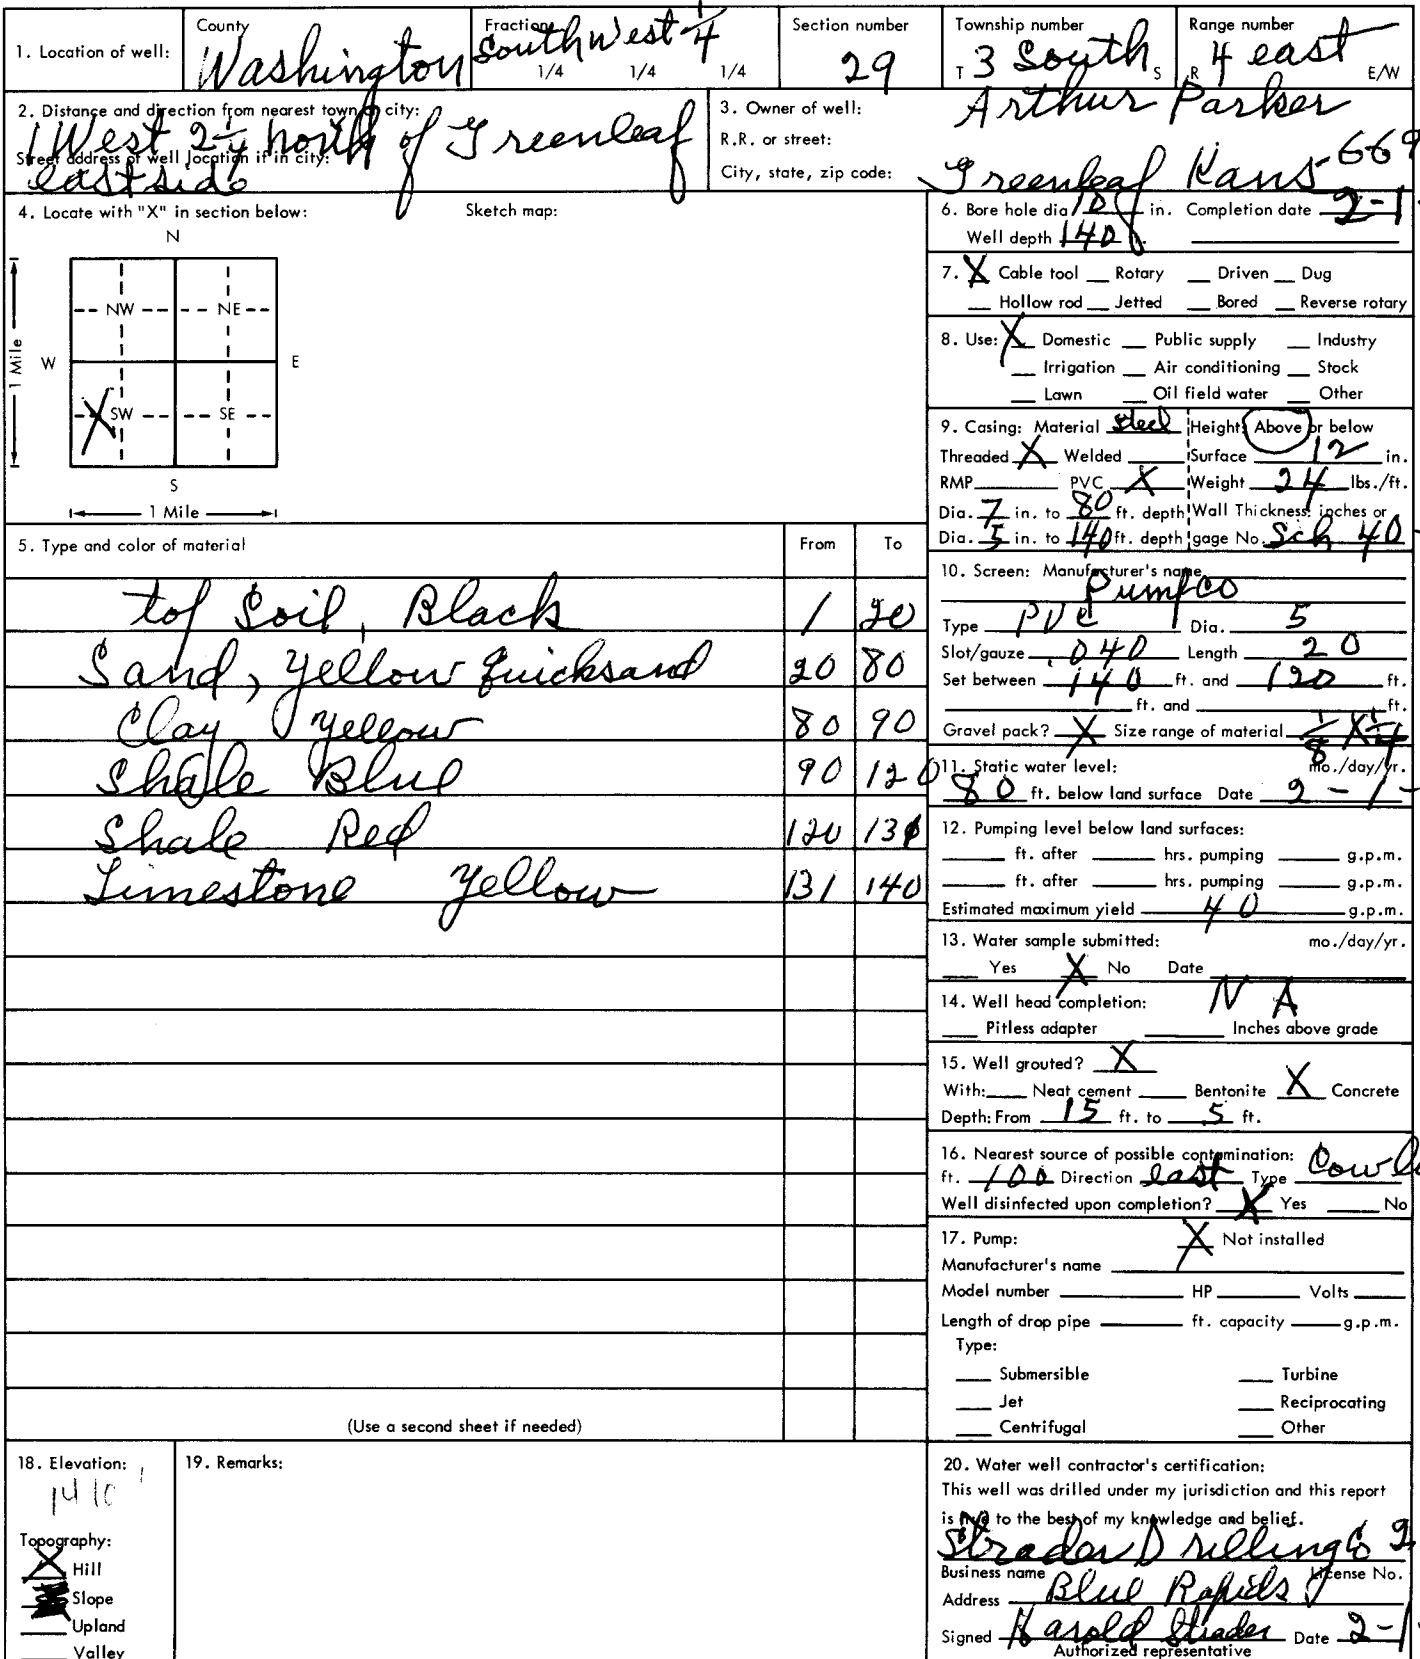 1. Location of well: County Washington Fraction Southwest 1/4 1/4 1/4 1/4 Section number 29 Township number T 3 South S Range number R 4 east E/W
2. Distance and direction from nearest town or city:
1 West 2 1/4 north of Greenleaf
Street address of well location if in city:
eastside
3. Owner of well: Arthur Parker
R.R. or street:
City, state, zip code: Greenleaf Kans 669
4. Locate with "X" in section below: Sketch map:
N
NW NE
W E
1 Mile
X SW SE
S
1 Mile
5. Type and color of material From To
top Soil, Black 1 20
Sand, yellow quicksand 20 80
Clay yellow 80 90
Shale Blue 90 120
Shale Red 120 131
Limestone yellow 131 140
(Use a second sheet if needed)
6. Bore hole dia 10 in. Completion date 2-1
Well depth 140
7. X Cable tool Rotary Driven Dug
Hollow rod Jetted Bored Reverse rotary
8. Use: X Domestic Public supply Industry
Irrigation Air conditioning Stock
Lawn Oil field water Other
9. Casing: Material steel Height: Above or below
Threaded X Welded Surface 12 in.
RMP PVC X Weight 24 lbs./ft.
Dia. 7 in. to 80 ft. depth Wall Thickness: inches or
Dia. 5 in. to 140 ft. depth gage No. Sch 40
10. Screen: Manufacturer's name
Pumpco
Type PVC Dia. 5
Slot/gauze .040 Length 20
Set between 140 ft. and 120 ft.
ft. and ft.
Gravel pack? X Size range of material 1/8 X 1/4
11. Static water level: mo./day/yr.
80 ft. below land surface Date 2-1-
12. Pumping level below land surfaces:
ft. after hrs. pumping g.p.m.
ft. after hrs. pumping g.p.m.
Estimated maximum yield 40 g.p.m.
13. Water sample submitted: mo./day/yr.
Yes X No Date
14. Well head completion: NA
Pitless adapter Inches above grade
15. Well grouted? X
With: Neat cement Bentonite X Concrete
Depth: From 15 ft. to 5 ft.
16. Nearest source of possible contamination:
ft. 100 Direction east Type Cow
Well disinfected upon completion? X Yes No
17. Pump: X Not installed
Manufacturer's name
Model number HP Volts
Length of drop pipe ft. capacity g.p.m.
Type:
Submersible Turbine
Jet Reciprocating
Centrifugal Other
18. Elevation:
1410'
Topography:
X Hill
Slope
Upland
Valley
19. Remarks:
20. Water well contractor's certification:
This well was drilled under my jurisdiction and this report
is true to the best of my knowledge and belief.
Strader Drilling Co
Business name License No.
Address Blue Rapids
Signed Harold Strader Date 2-1
Authorized representative